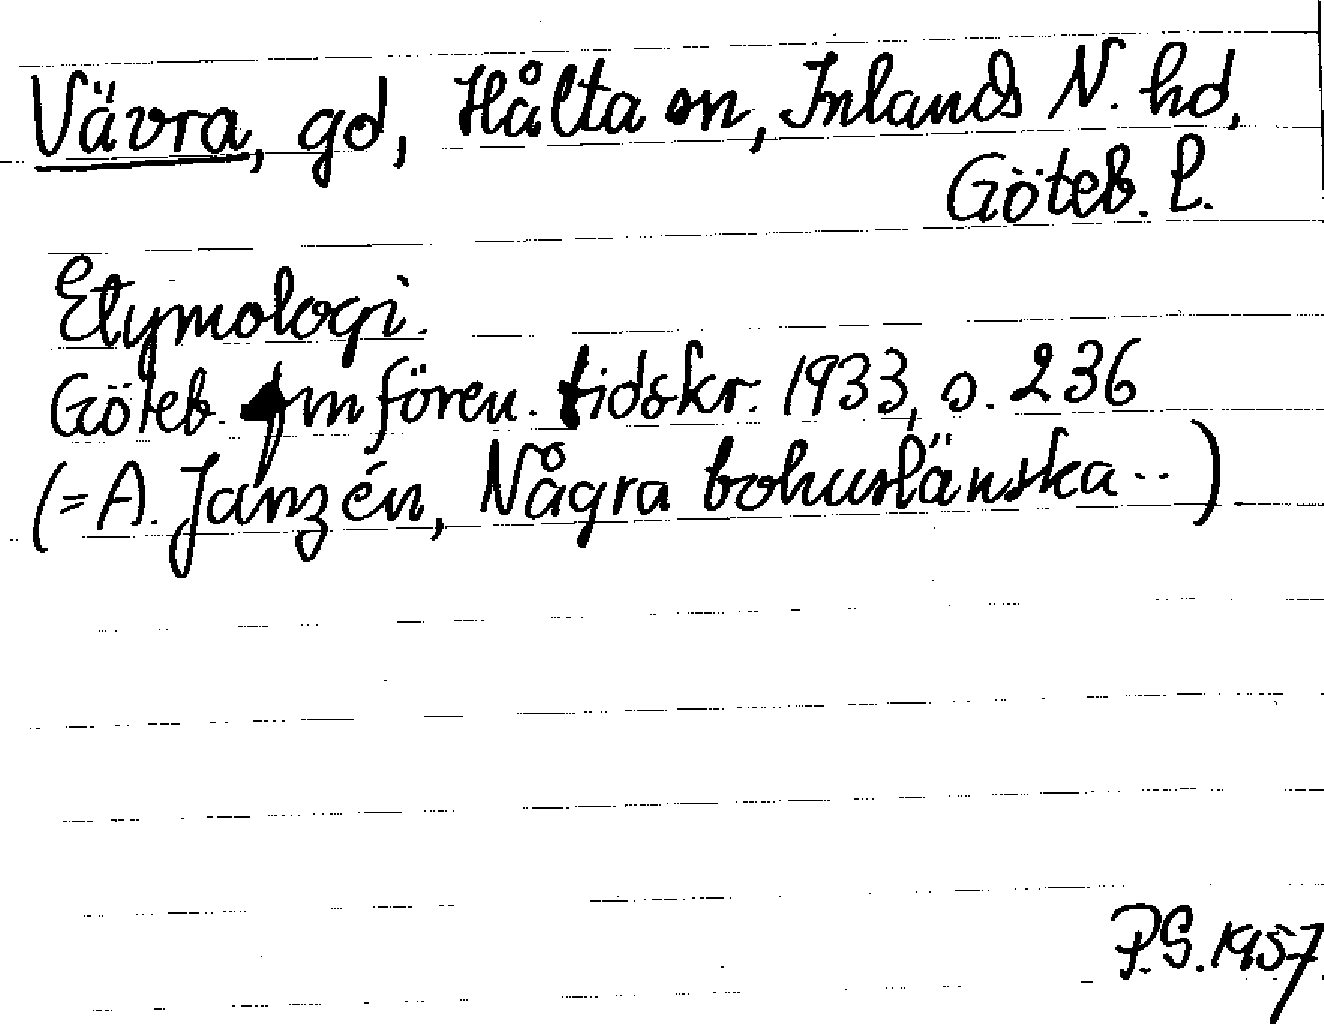 Vävra, gd, Hålta sn, Inlands N. hd,
Göteb. l.
Etymologi.
Göteb. jmfören. tidskr. 1933, s. 236
(= A. Janzén, Några bohuslänska..)
P.S. 1957